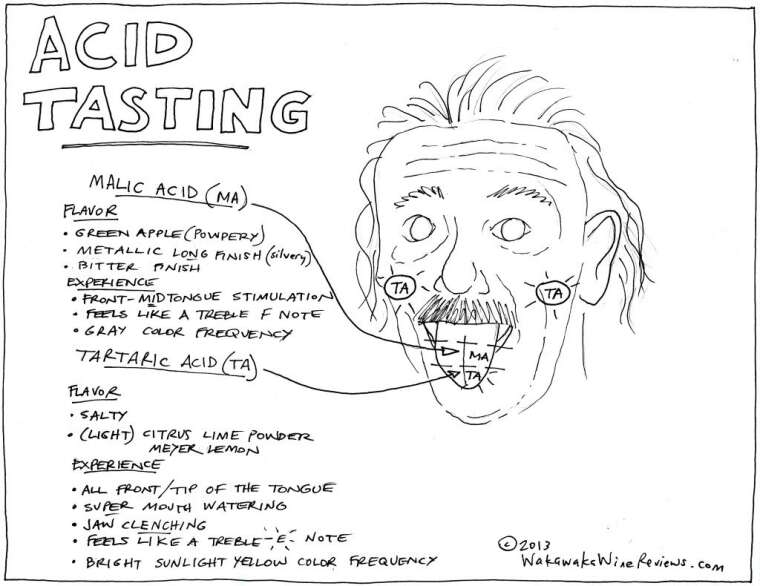 ACID
TASTING
MALIC ACID (MA)
FLAVOR
• GREEN APPLE (POWDERY)
• METALLIC LONG FINISH (silvery)
• BITTER FINISH
EXPERIENCE
• FRONT-MIDTONGUE STIMULATION
• FEELS LIKE A TREBLE F NOTE
• GRAY COLOR FREQUENCY
TARTARIC ACID (TA)
FLAVOR
• SALTY
• (LIGHT) CITRUS LIME POWDER
MEYER LEMON
EXPERIENCE
• ALL FRONT/TIP OF THE TONGUE
• SUPER MOUTH WATERING
• JAW CLENCHING
• FEELS LIKE A TREBLE E NOTE
• BRIGHT SUNLIGHT YELLOW COLOR FREQUENCY
TA
TA
MA
TA
©2013
WakawakaWineReviews.com